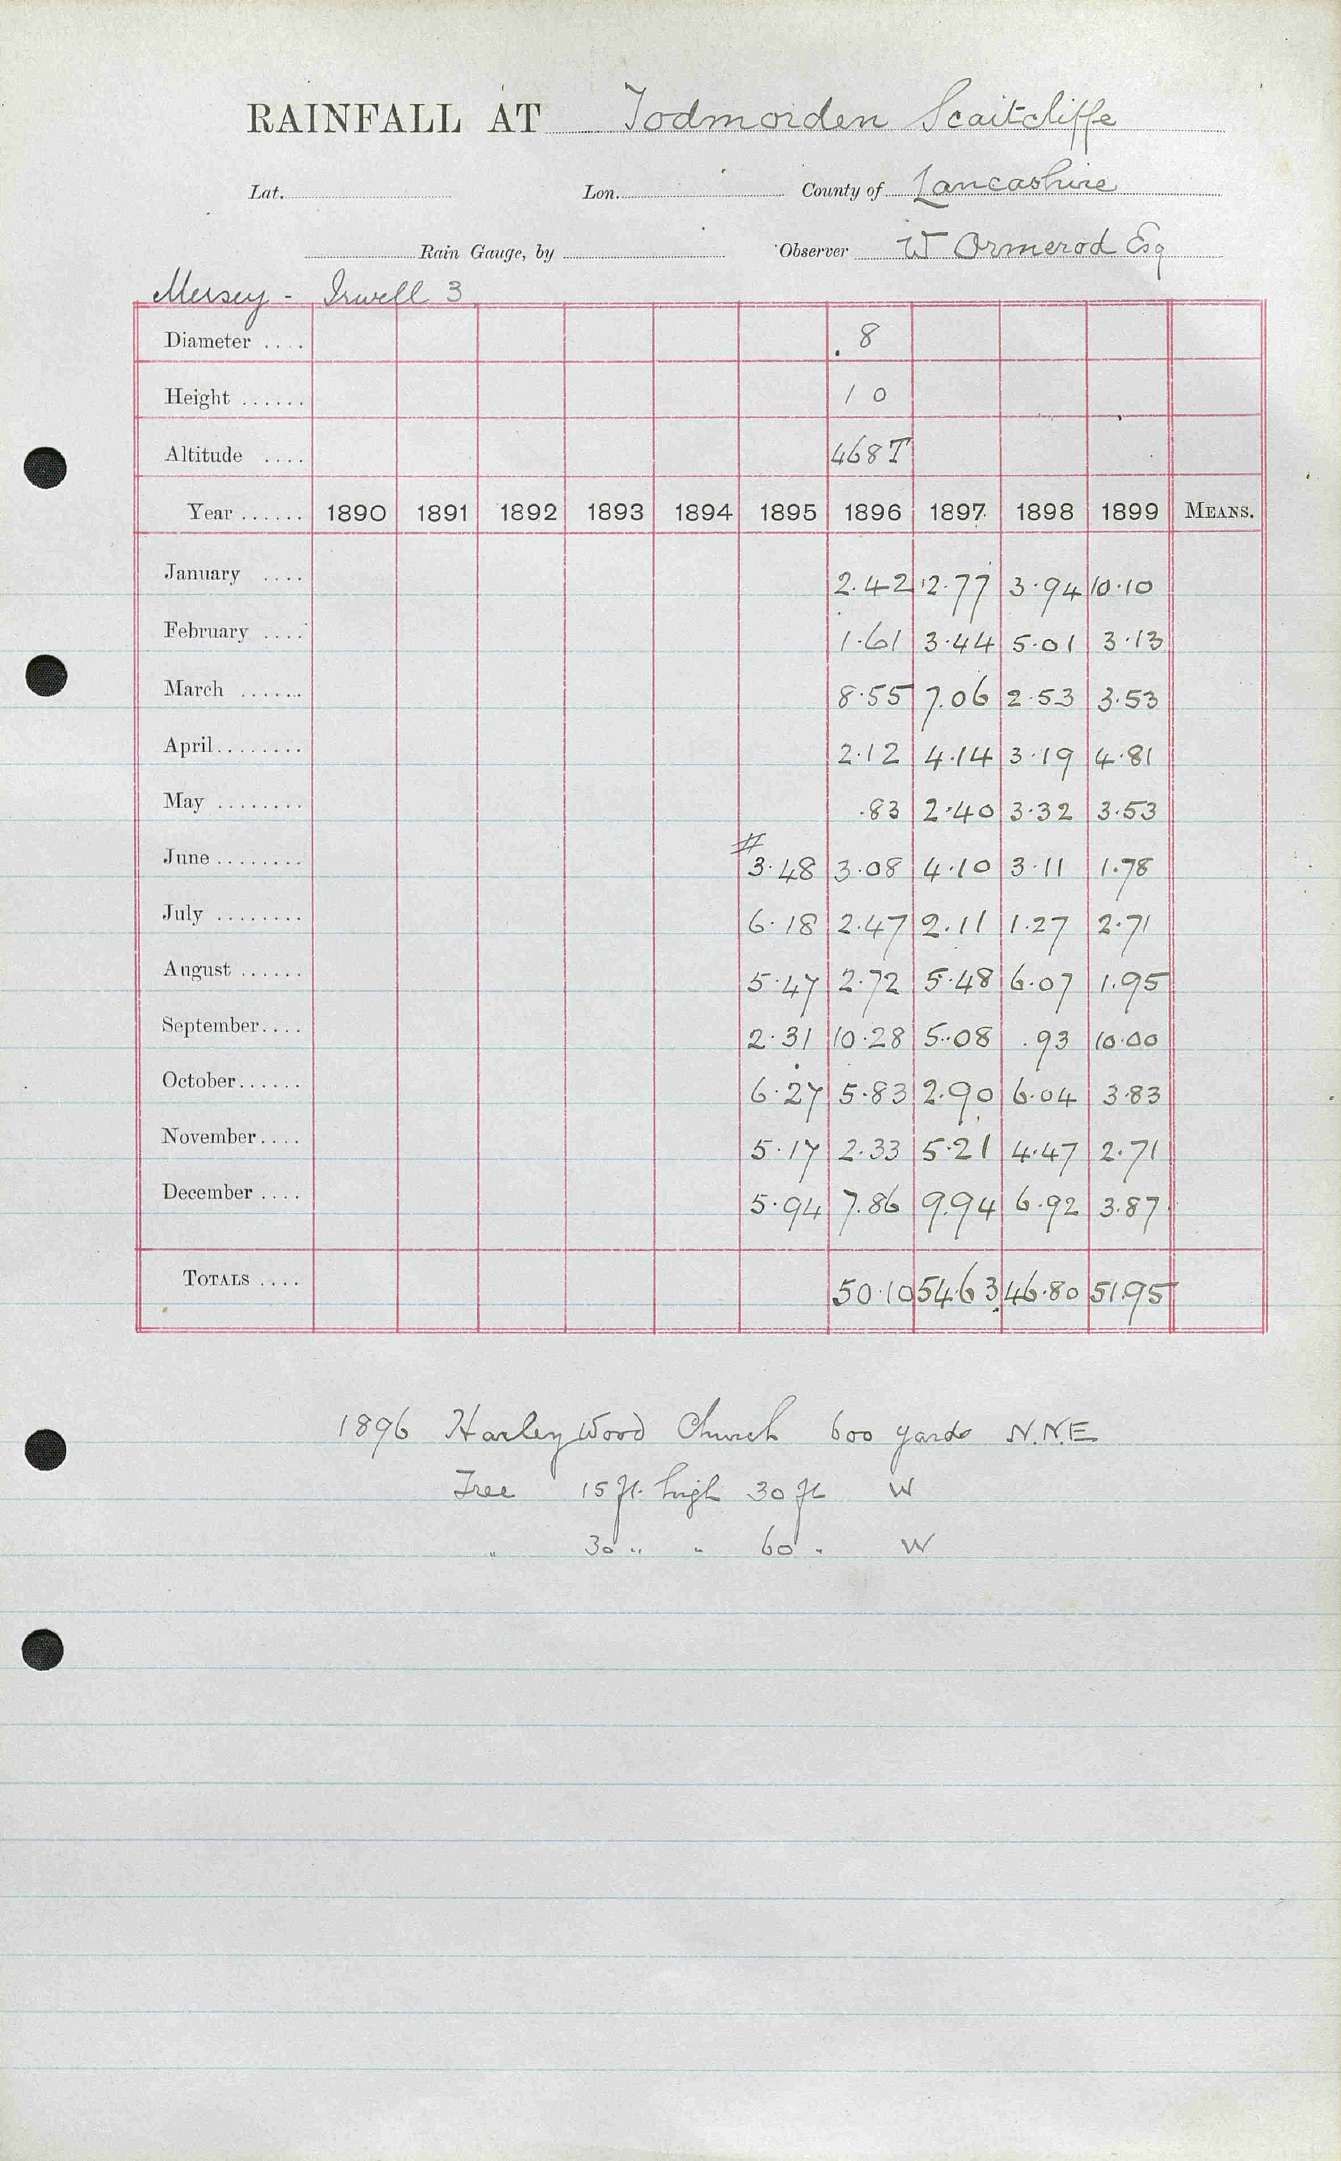 RAINFALL AT Todmorden Scaitcliffe
Lat. Lon. County of Lancashire
Rain Gauge, by Observer W Ormerod Esq
Mersey - Irwell 3
Diameter .... 8
Height ...... 1 0
Altitude .... 468 T
Year ...... 1890 1891 1892 1893 1894 1895 1896 1897 1898 1899 MEANS.
January .... 2.42 2.77 3.94 10.10
February .... 1.61 3.44 5.01 3.13
March ....... 8.55 7.06 2.53 3.53
April........ 2.12 4.14 3.19 4.81
May ........ .83 2.40 3.32 3.53
#
June ........ 3.48 3.08 4.10 3.11 1.78
July ........ 6.18 2.47 2.11 1.27 2.71
August ...... 5.47 2.72 5.48 6.07 1.95
September.... 2.31 10.28 5.08 .93 10.00
October...... 6.27 5.83 2.90 6.04 3.83
November.... 5.17 2.33 5.21 4.47 2.71
December .... 5.94 7.86 9.94 6.92 3.87
TOTALS .... 50.10 54.63 46.80 51.95
1896 Harley Wood Church 600 yards N.N.E
Tree 15 ft. high 30 ft W
" 30 " " 60 " W